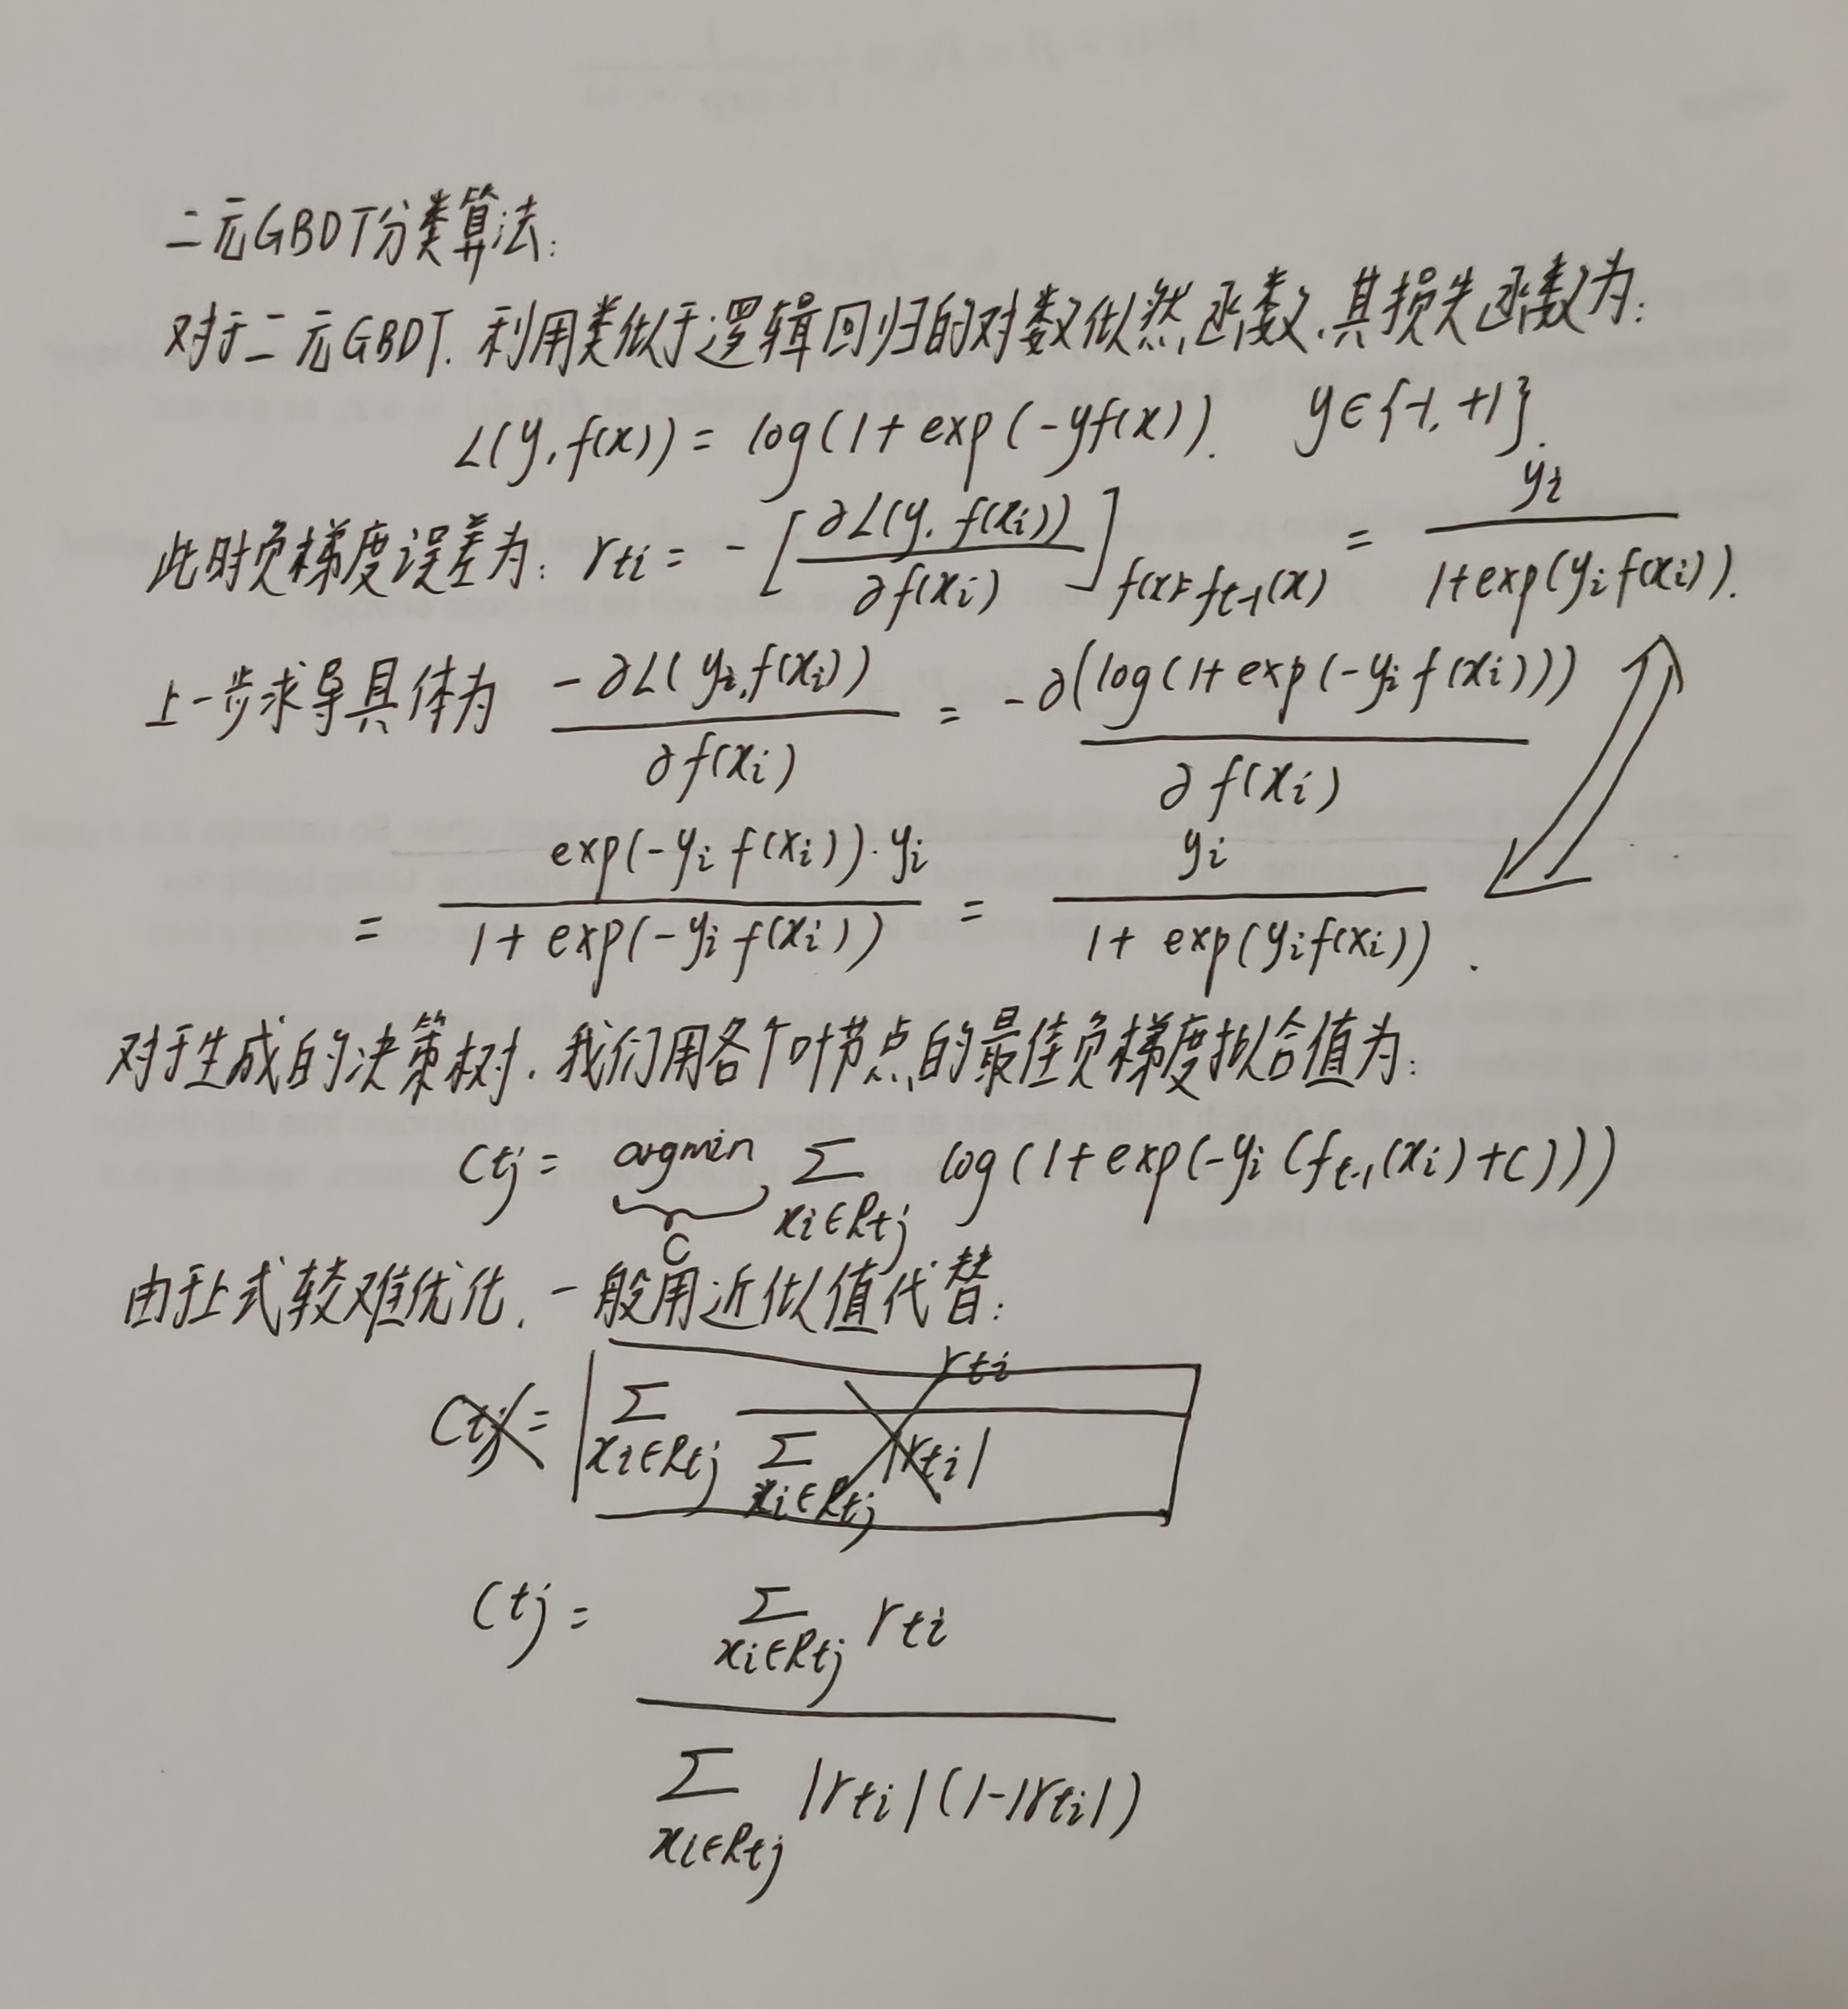 二元GBDT分类算法:
对于二元GBDT.利用类似于逻辑回归的对数似然函数,其损失函数为:
L(y,f(x)) = log(1+exp(-yf(x)). y∈{-1,+1}.
此时负梯度误差为: r_{ti} = -[∂L(y,f(x_i))/∂f(x_i)]_{f(x)=f_{t-1}(x)} = y_i/(1+exp(y_i f(x_i)).
上一步求导具体为 -∂L(y_i,f(x_i))/∂f(x_i) = -∂(log(1+exp(-y_i f(x_i)))/∂f(x_i)
= exp(-y_i f(x_i))·y_i/(1+exp(-y_i f(x_i))) = y_i/(1+exp(y_i f(x_i))).
对于生成的决策树.我们用各个叶节点的最佳负梯度拟合值为:
C_{tj} = argmin_C Σ_{x_i∈R_{tj}} log(1+exp(-y_i(f_{t-1}(x_i)+C)))
由于上式较难优化,一般用近似值代替:
C_{tj} = Σ_{x_i∈R_{tj}} r_{ti}/Σ_{x_i∈R_{tj}} |r_{ti}|
C_{tj} = Σ_{x_i∈R_{tj}} r_{ti}/Σ_{x_i∈R_{tj}} |r_{ti}|(1-|r_{ti}|)